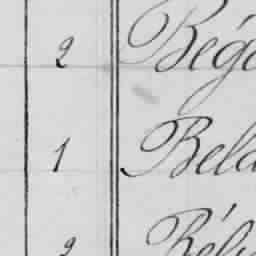 2 Bég
1 Bela
2 Bél